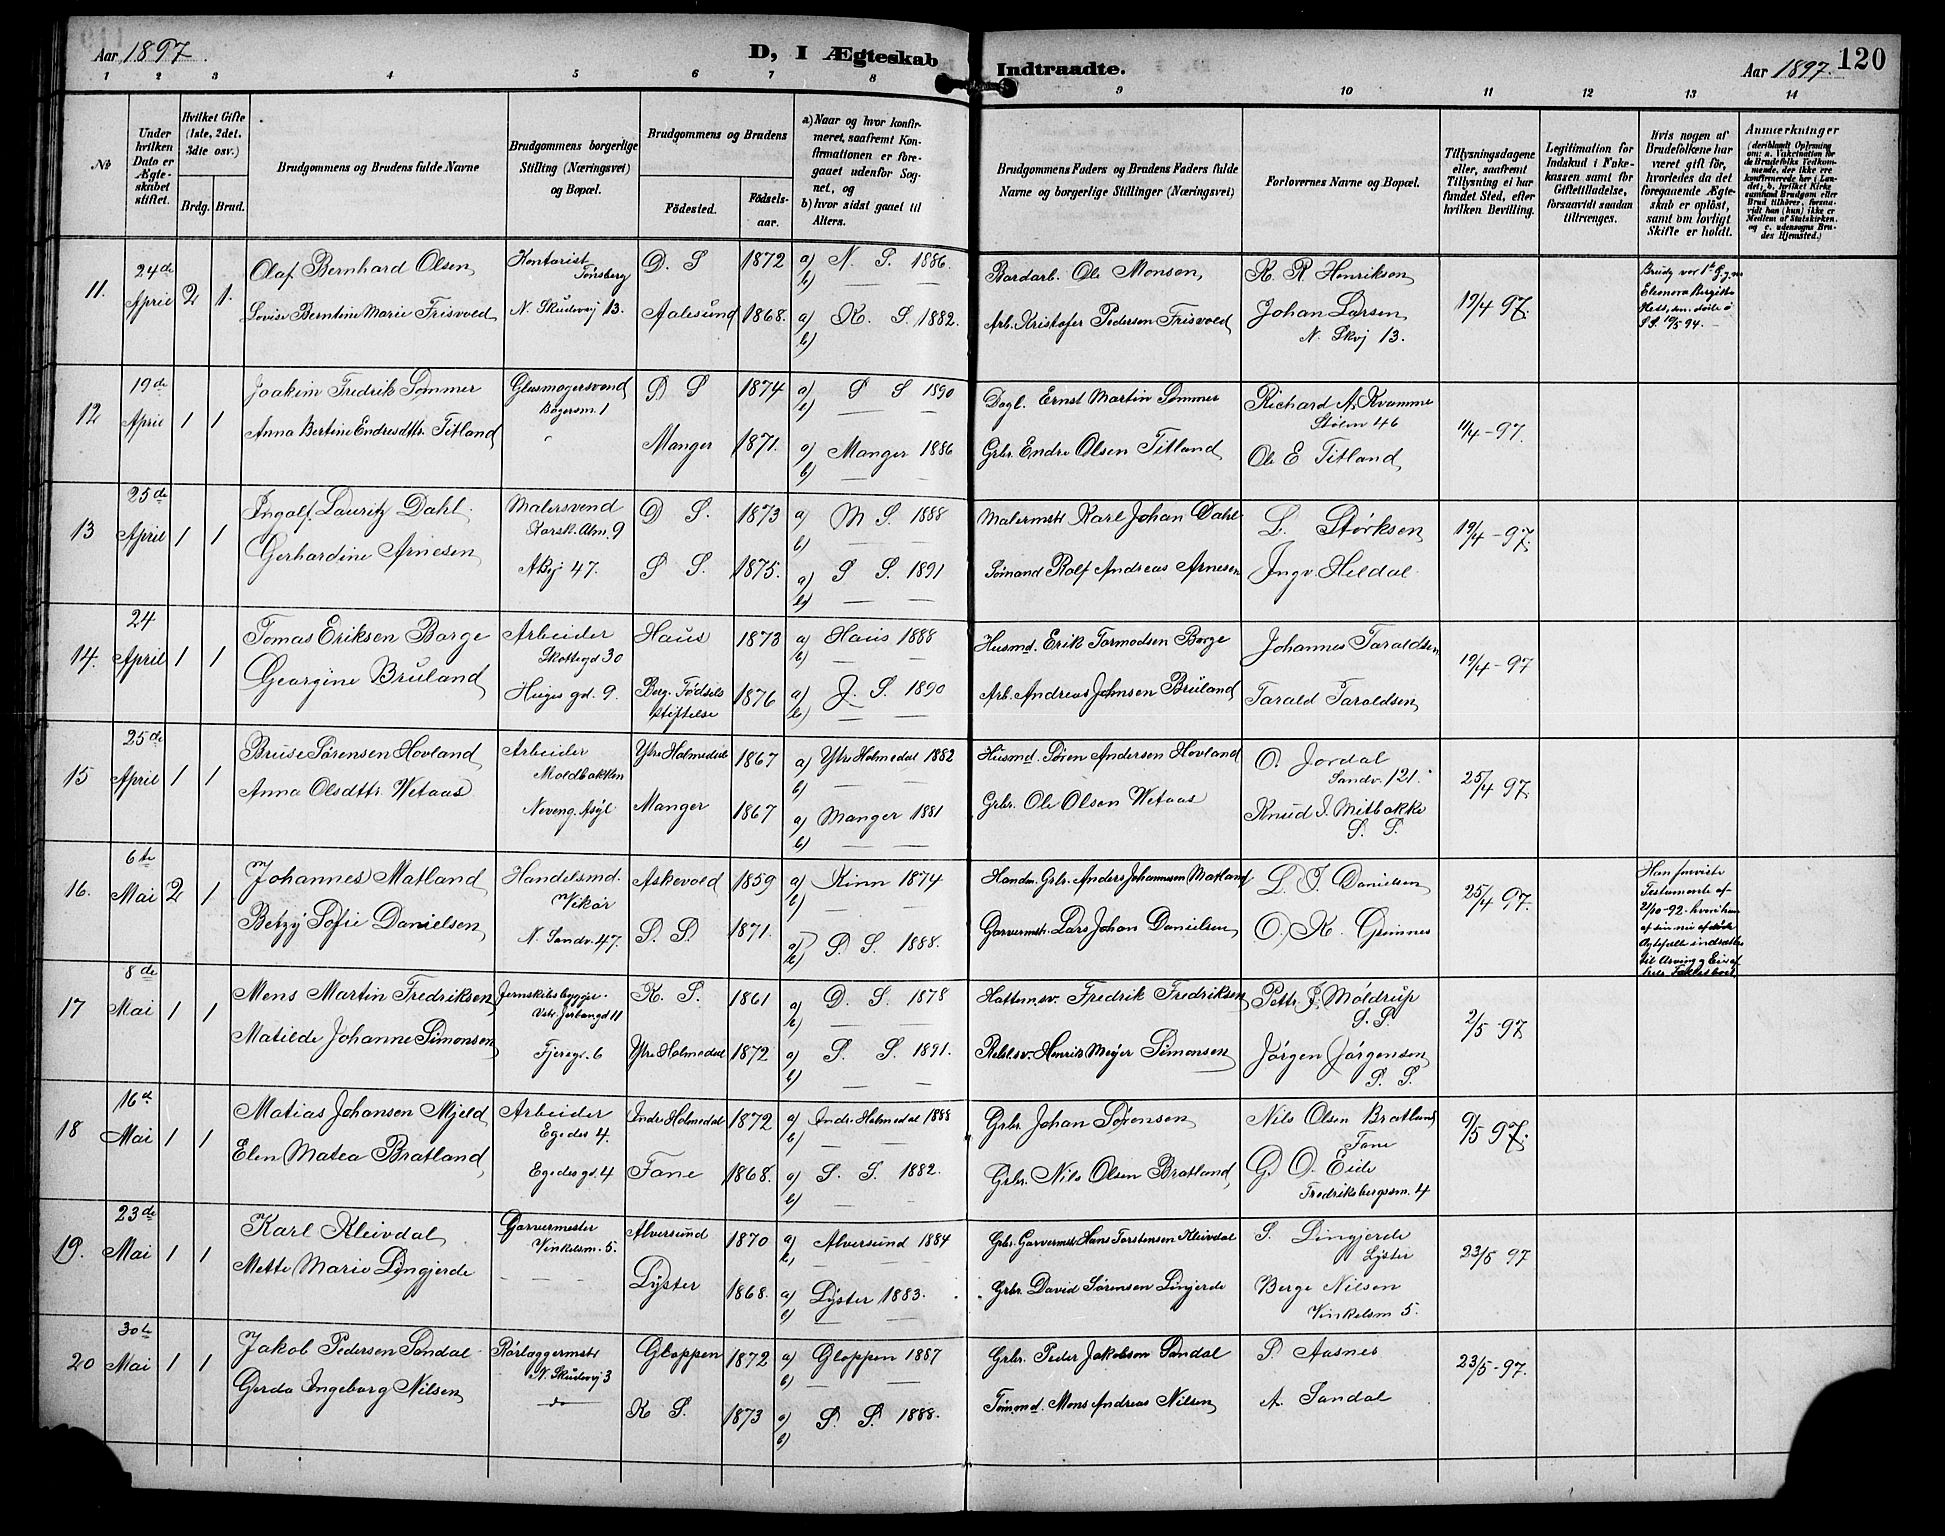 Aar 1897. D, I Ægteskab Indtraadte. Aar 1897. 120
1 2 3 4 5 6 7 8 9 10 11 12 13 14
No
Under hvilken Dato er Ægteskabet stiftet.
Hvilket Gifte (1ste, 2det, 3die osv.)
Brdg. Brud.
Brudgommens og Brudens fulde Navne
Brudgommens borgerlige Stilling (Næringsvei) og Bopæl.
Brudgommens og Brudens
Fødested. Fødselsaar.
a) Naar og hvor konfirmeret, saafremt Konfirmationen er foregaaet udenfor Sognet, og
b) hvor sidst gaaet til Alters.
Brudgommens Faders og Brudens Faders fulde Navne og borgerlige Stillinger (Næringsvei)
Forlovernes Navne og Bopæl.
Tillysningsdagene eller, saafremt Tillysning ei har fundet Sted, efter hvilken Bevilling.
Legitimation for Indskud i Enkekassen samt for Giftetilladelse, forsaavidt saadan tiltrænges.
Hvis nogen af Brudefolkene har været gift før, hvorledes da det foregaaende Ægteskab er opløst, samt om lovligt Skifte er holdt.
Anmærkninger (deriblandt Oplysning om: a. Vakcination for de Brudefolks Vedkommende, der ikke ere konfirmerede her i Landet; b. hvilket Kirkesamfund Brudgom eller Brud tilhører, forsaavidt han (hun) ikke er Medlem af Statskirken. og c. udensogns Brudes Hjemsted.)
11. 24de April 2 1.
Olaf Bernhard Olsen, Kontorist Tønsberg D. S 1872 a) N. S. 1886. b) — — Bordarb. Ole Monsen, K. R. Henriksen
Lovise Berntine Marie Frisvold N. Skudevj 13. Aalesund 1868. a) K. S. 1882. b) Arb. Kristofer Pedersen Frisvold Johan Larsen N. Skvj 13. 19/4 97.
Eleonora Birgitte
12 19de April 1 1
Joakim Fredrik Sommer Glasmagersvend Bøgersm. 1 D S 1874 a) S S 1890 b) — — Dagl. Ernst Martin Sommer Richard A. Kvamme Stølen 46
Anna Bertine Endresdttr. Titland Manger 1871. a) Manger 1886 b) — — Grbr. Endre Olsen Titland Ole E Titland 11/4-97.
13 25de April 1 1
Ingolf Lauritz Dahl. Malersvend D S. 1873 a) M S. 1888 b) — — Malermstr Karl Johan Dahl L. Størksen 19/4-97.
Gerhardine Arnesen 47. S S. 1875. a) S S. 1891 b) — — Sømand Rolf Andreas Arnesen Ingv Heldal
14. 24 April 1 1
Tomas Eriksen Borge Arbeider Skottegd 30 Haus 1873 a) Haus 1888 b) — — Husmd. Erik Tormodsen Borge Johannes Taraldsen
Georgine Bruland Heiges gd. 9. Berg. Fødselsstiftelse 1876 a) J. S. 1890 b) — — Arb. Andreas Johnsen Bruland Tarald Taraldsen 19/4-97
15 25de April 1 1
Bruse Sørensen Hovland Arbeider Moldbakken Ytre Holmedal 1867 a) Ytre Holmedal 1882 b) — — Husmd. Søren Andersen Hovland O. Jordal Sandv. 121.
Anna Olsdttr. Wetaas Neveng. Asyl Manger 1867 a) Manger 1881 b) — — Grbr. Ole Olsen Wetaas Knud J. Mitbakke S. S. 25/4 97.
16. 6te Mai 2 1
Johannes Matland Handelsmd. Vikør Askevold 1859 a) Kinn 1874 b) — — Handm. Grbr. Anders Johannesen Matland L. J. Danielsen
Betzy Sofie Danielsen N. Sandv. 47. S. S. 1871. a) S S. 1888. b) Garvermstr. Lars Johan Danielsen O. K. Grimnes 25/4 97.
Han foreviste Testamente af 21/10-92
17 8de Mai 1 1
Mons Martin Fredriksen Jernskibsbygger. K. S. 1861 a) D. S. 1878 b) — — Hattemsv. Fredrik Fredriksen Pettr. J. Moldrup S. S.
Matilde Johanne Simonsen Fjeregr. 6 Ytre Holmedal 1872 a) S. S. 1891. b) — — Henrik Meyer Simonsen Jørgen Jørgensen S. S. 2/5 97
18 16d Mai 1 1
Matias Johansen Mjeld Arbeider Egedes 4. Indre Holmedal 1872 a) Indr. Holmedal 1888 b) — — Grbr. Johan Sørensen Nils Olsen Bratland Fane
Elen Matea Bratland Egedesgd. 4 Fane 1868. a) S. S. 1882. b) — — Grbr. Nils Olsen Bratland G. O. Eide Fredriksbergssm. 4 9/5 97.
19. 23de Mai 1 1
Karl Kleivdal Garvermester Vinkelsm. 5. Alversund 1870 a) Alversund 1884 b) — — Grbr. Garvermstr Hans Torstensen Kleivdal S. Lingjerde Lyster
Mette Marie Lyngjerde — — — Lyster 1868. a) Lyster 1883. b) — — Grbr. David Sørensen Lingjerde Berge Nilsen Vinkelsm 5. 23/5 97
20 30te Mai 1 1
Jakob Pedersen Sandal Rørlæggermstr N. Skudevj 3 Gloppen 1872 a) Gloppen 1887 b) — — Grbr. Peder Jakobson Sandal P. Aasnes
Gerda Ingeborg Nilsen — do — K S. 1873 a) S S. 1888. b) — — Tømmd. Mons Andreas Nilsen A. Sandal 23/5-97.